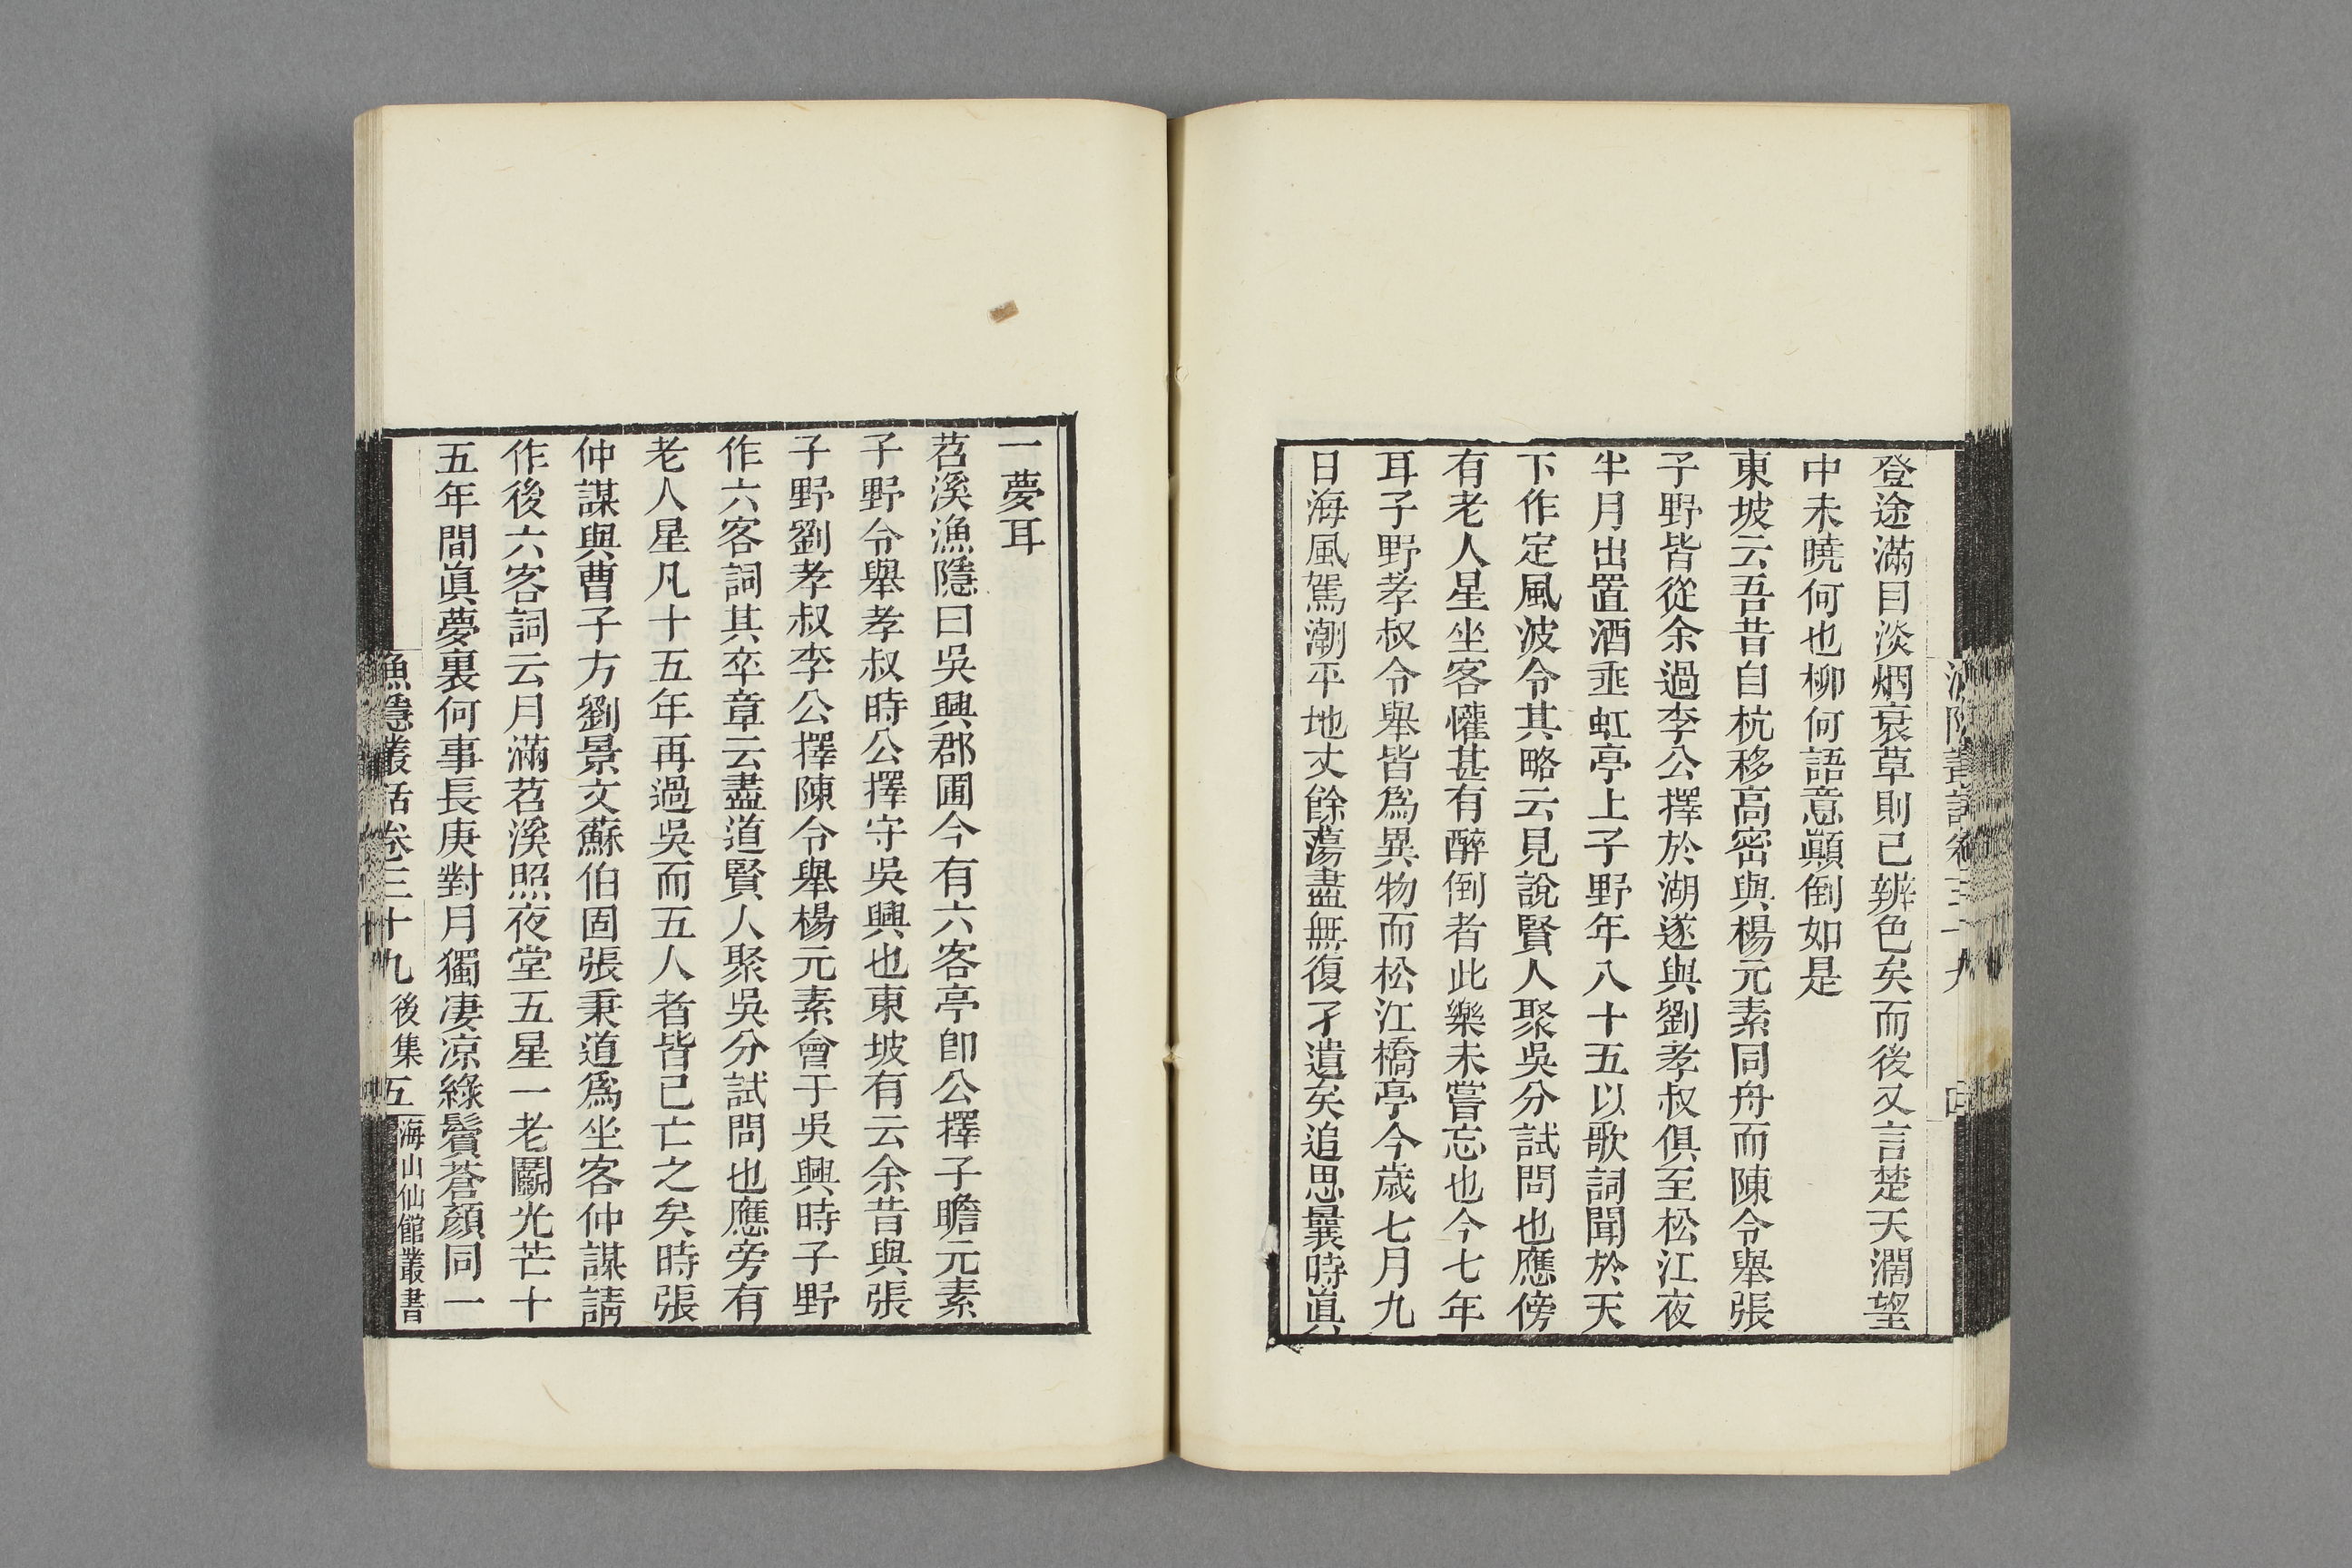 登途滿目淡烟衰草則已辨色矣而後又言楚天濶望
中未曉何也柳何語意顚倒如是
東坡云吾昔自杭移高密與楊元素同舟而陳令舉張
子野皆從余過李公擇於湖遂與劉孝叔俱至松江夜
半月出置酒垂虹亭上子野年八十五以歌詞聞於天
下作定風波令其略云見說賢人聚吳分試問也應傍
有老人星坐客懽甚有醉倒者此樂未嘗忘也今七年
耳子野孝叔令舉皆爲異物而松江橋亭今歲七月九
日海風駕潮平地丈餘蕩盡無復孑遺矣追思曩時眞
一夢耳
苕溪漁隱曰吳興郡圃今有六客亭卽公擇子瞻元素
子野令舉孝叔時公擇守吳興也東坡有云余昔與張
子野劉孝叔李公擇陳令舉楊元素會于吳興時子野
作六客詞其卒章云盡道賢人聚吳分試問也應旁有
老人星凡十五年再過吳而五人者皆已亡之矣時張
仲謀與曹子方劉景文蘇伯固張秉道爲坐客仲謀請
作後六客詞云月滿苕溪照夜堂五星一老鬭光芒十
五年間眞夢裏何事長庚對月獨凄凉綠鬢蒼顏同一
漁隱叢話卷三十九 後集 五 海山仙館叢書